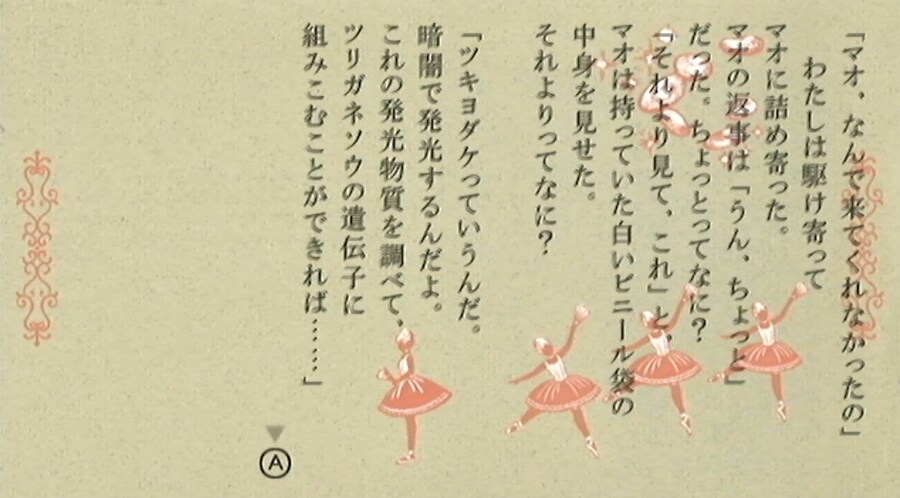 「マオ、なんで来てくれなかったの」
わたしは駆け寄って
マオに詰め寄った。
マオの返事は「うん、ちょっと」
だった。ちょっとってなに？
「それより見て、これ」と、
マオは持っていた白いビニール袋の
中身を見せた。
それよりってなに？
「ツキヨダケっていうんだ。
暗闇で発光するんだよ。
これの発光物質を調べて、
ツリガネソウの遺伝子に
組みこむことができれば……」
A